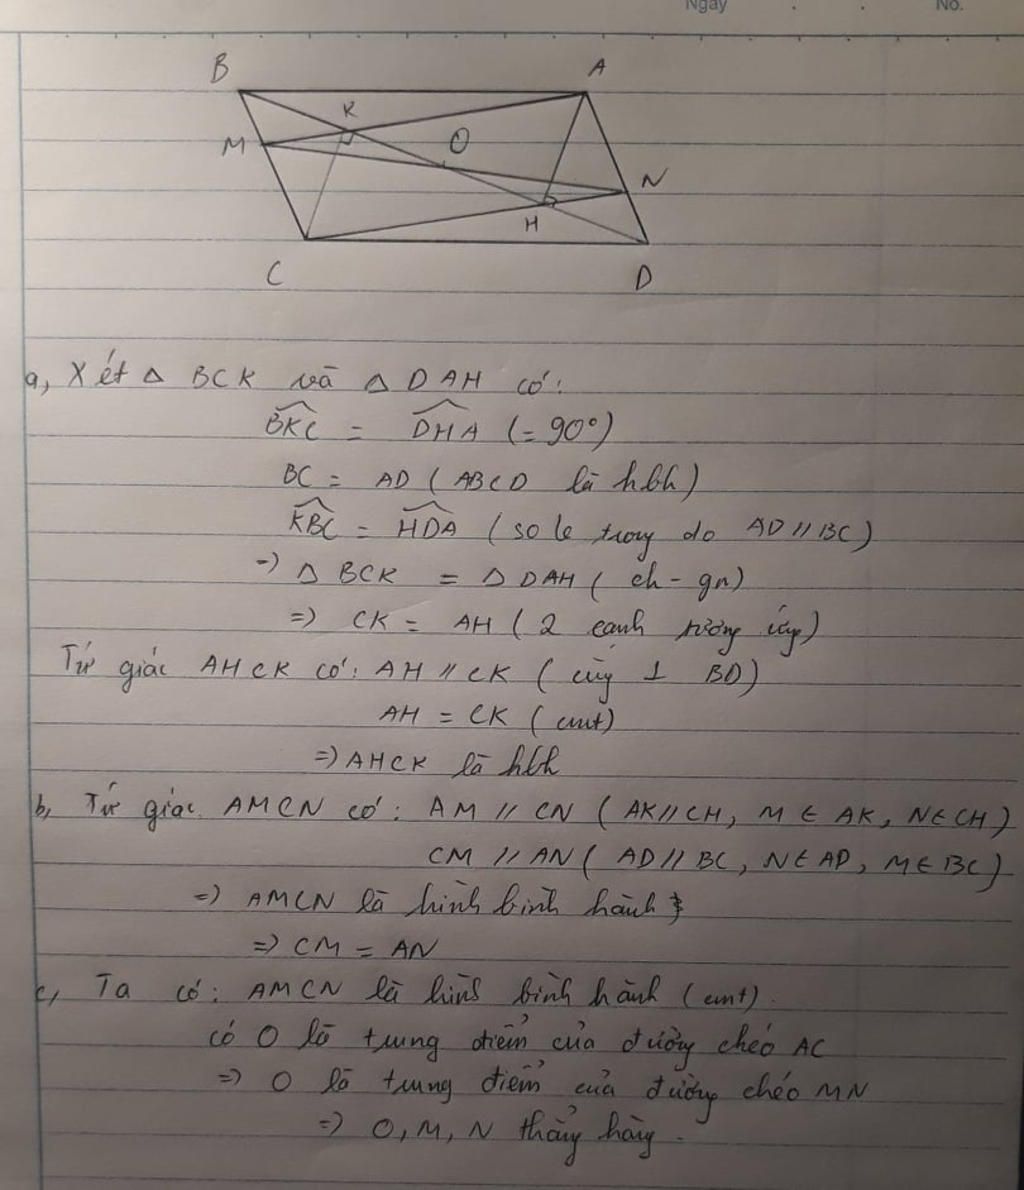 Ngày . . No.
B A
K
M O N
H
C D
a, Xét △ BCK và △ DAH có:
BKC = DHA (= 90°)
BC = AD ( ABCD là hbh)
KBC = HDA ( so le trong do AD // BC)
=> △ BCK = △ DAH ( ch - gn)
=> CK = AH ( 2 cạnh tương ứng)
Tứ giác AHCK có: AH // CK ( cùng ⊥ BD)
AH = CK ( cmt)
=> AHCK là hbh
b, Tứ giác AMCN có: AM // CN ( AK // CH, M ∈ AK, N ∈ CH)
CM // AN ( AD // BC, N ∈ AD, M ∈ BC)
=> AMCN là hình bình hành
=> CM = AN
c, Ta có: AMCN là hình bình hành (cmt).
có O là trung điểm của đường chéo AC
=> O là trung điểm của đường chéo MN
=> O, M, N thẳng hàng.